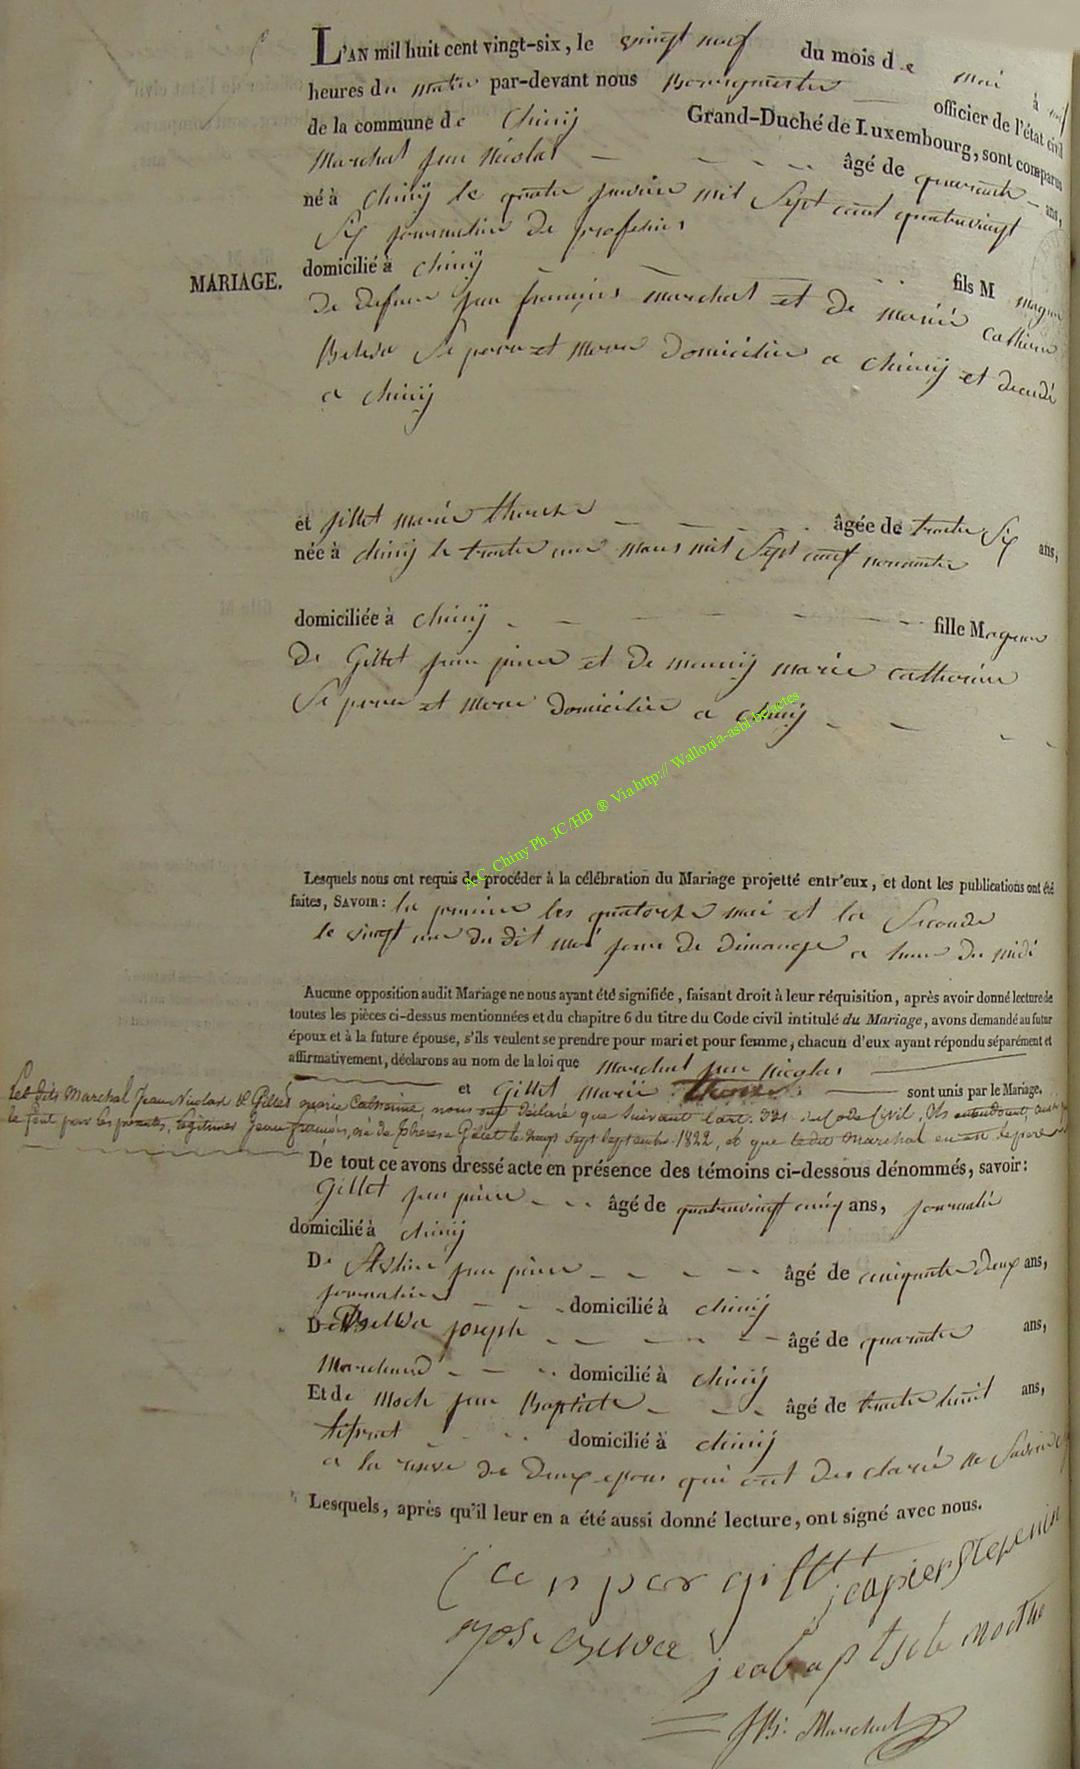 L'AN mil huit cent vingt-six, le vingt neuf du mois de mai à
heures du matin par-devant nous Bourgmestre officier de l'état civil
de la commune de Chiny Grand-Duché de Luxembourg, sont comparus
Marchal jean Nicolas âgé de quarante ans,
né à Chiny le quatre janvier mil Sept cent quatrevingt
Six journalier de profession
MARIAGE.
domicilié à Chiny fils M
de defunt jean françois marchal et de marie catherine
Belva Se pere et Mere domicilier a chiny et decedé
a chiny
et jillet marie therese âgée de trente Six ans,
née à chiny le trente un mars mil Sept cent nonante
domiciliée à chiny fille M
De Gillet jean piere et de marie catherine
Se pere et Mere domicilier a chiny
A.C. Chiny Ph. JC/HB ® Via http:// Wallonia-asbl.be/actes
Lesquels nous ont requis de procéder à la célébration du Mariage projetté entr'eux, et dont les publications ont été
faites, SAVOIR: la premiere les quatorze mai et la Seconde
le vingt une du dit moi jour de dimange a heure du midi
Aucune opposition audit Mariage ne nous ayant été signifiée, faisant droit à leur réquisition, après avoir donné lecture de
toutes les pièces ci-dessus mentionnées et du chapitre 6 du titre du Code civil intitulé du Mariage, avons demandé au futur
époux et à la future épouse, s'ils veulent se prendre pour mari et pour femme, chacun d'eux ayant répondu séparément et
affirmativement, déclarons au nom de la loi que Marchal jean nicolas
et Gillet Marie therese sont unis par le Mariage.
Les dits Marchal Jean Nicolas & Gillet marie Catherine, nous ont déclaré que suivant l'art. 331 du Code Civil, ils entendent,
le font par les présentes, légitimer Jean françois, né de Thérèse Gillet le vingt sept septembre 1822, et que ledit Marchal en est le pere
De tout ce avons dressé acte en présence des témoins ci-dessous dénommés, savoir:
Gillet jean piere âgé de quatrevingt cinq ans, journalié
domicilié à chiny
De jean piere âgé de cinquante deux ans,
journalier domicilié à chiny
De Belva joseph âgé de quarante ans,
Marchand domicilié à chiny
Et de Moch jean Baptiste âgé de trente huit ans,
domicilié à chiny
a la reserve de deux epous qui ont des clarié ne Savoir
Lesquels, après qu'il leur en a été aussi donné lecture, ont signé avec nous.
jean pier gillet
Marchal